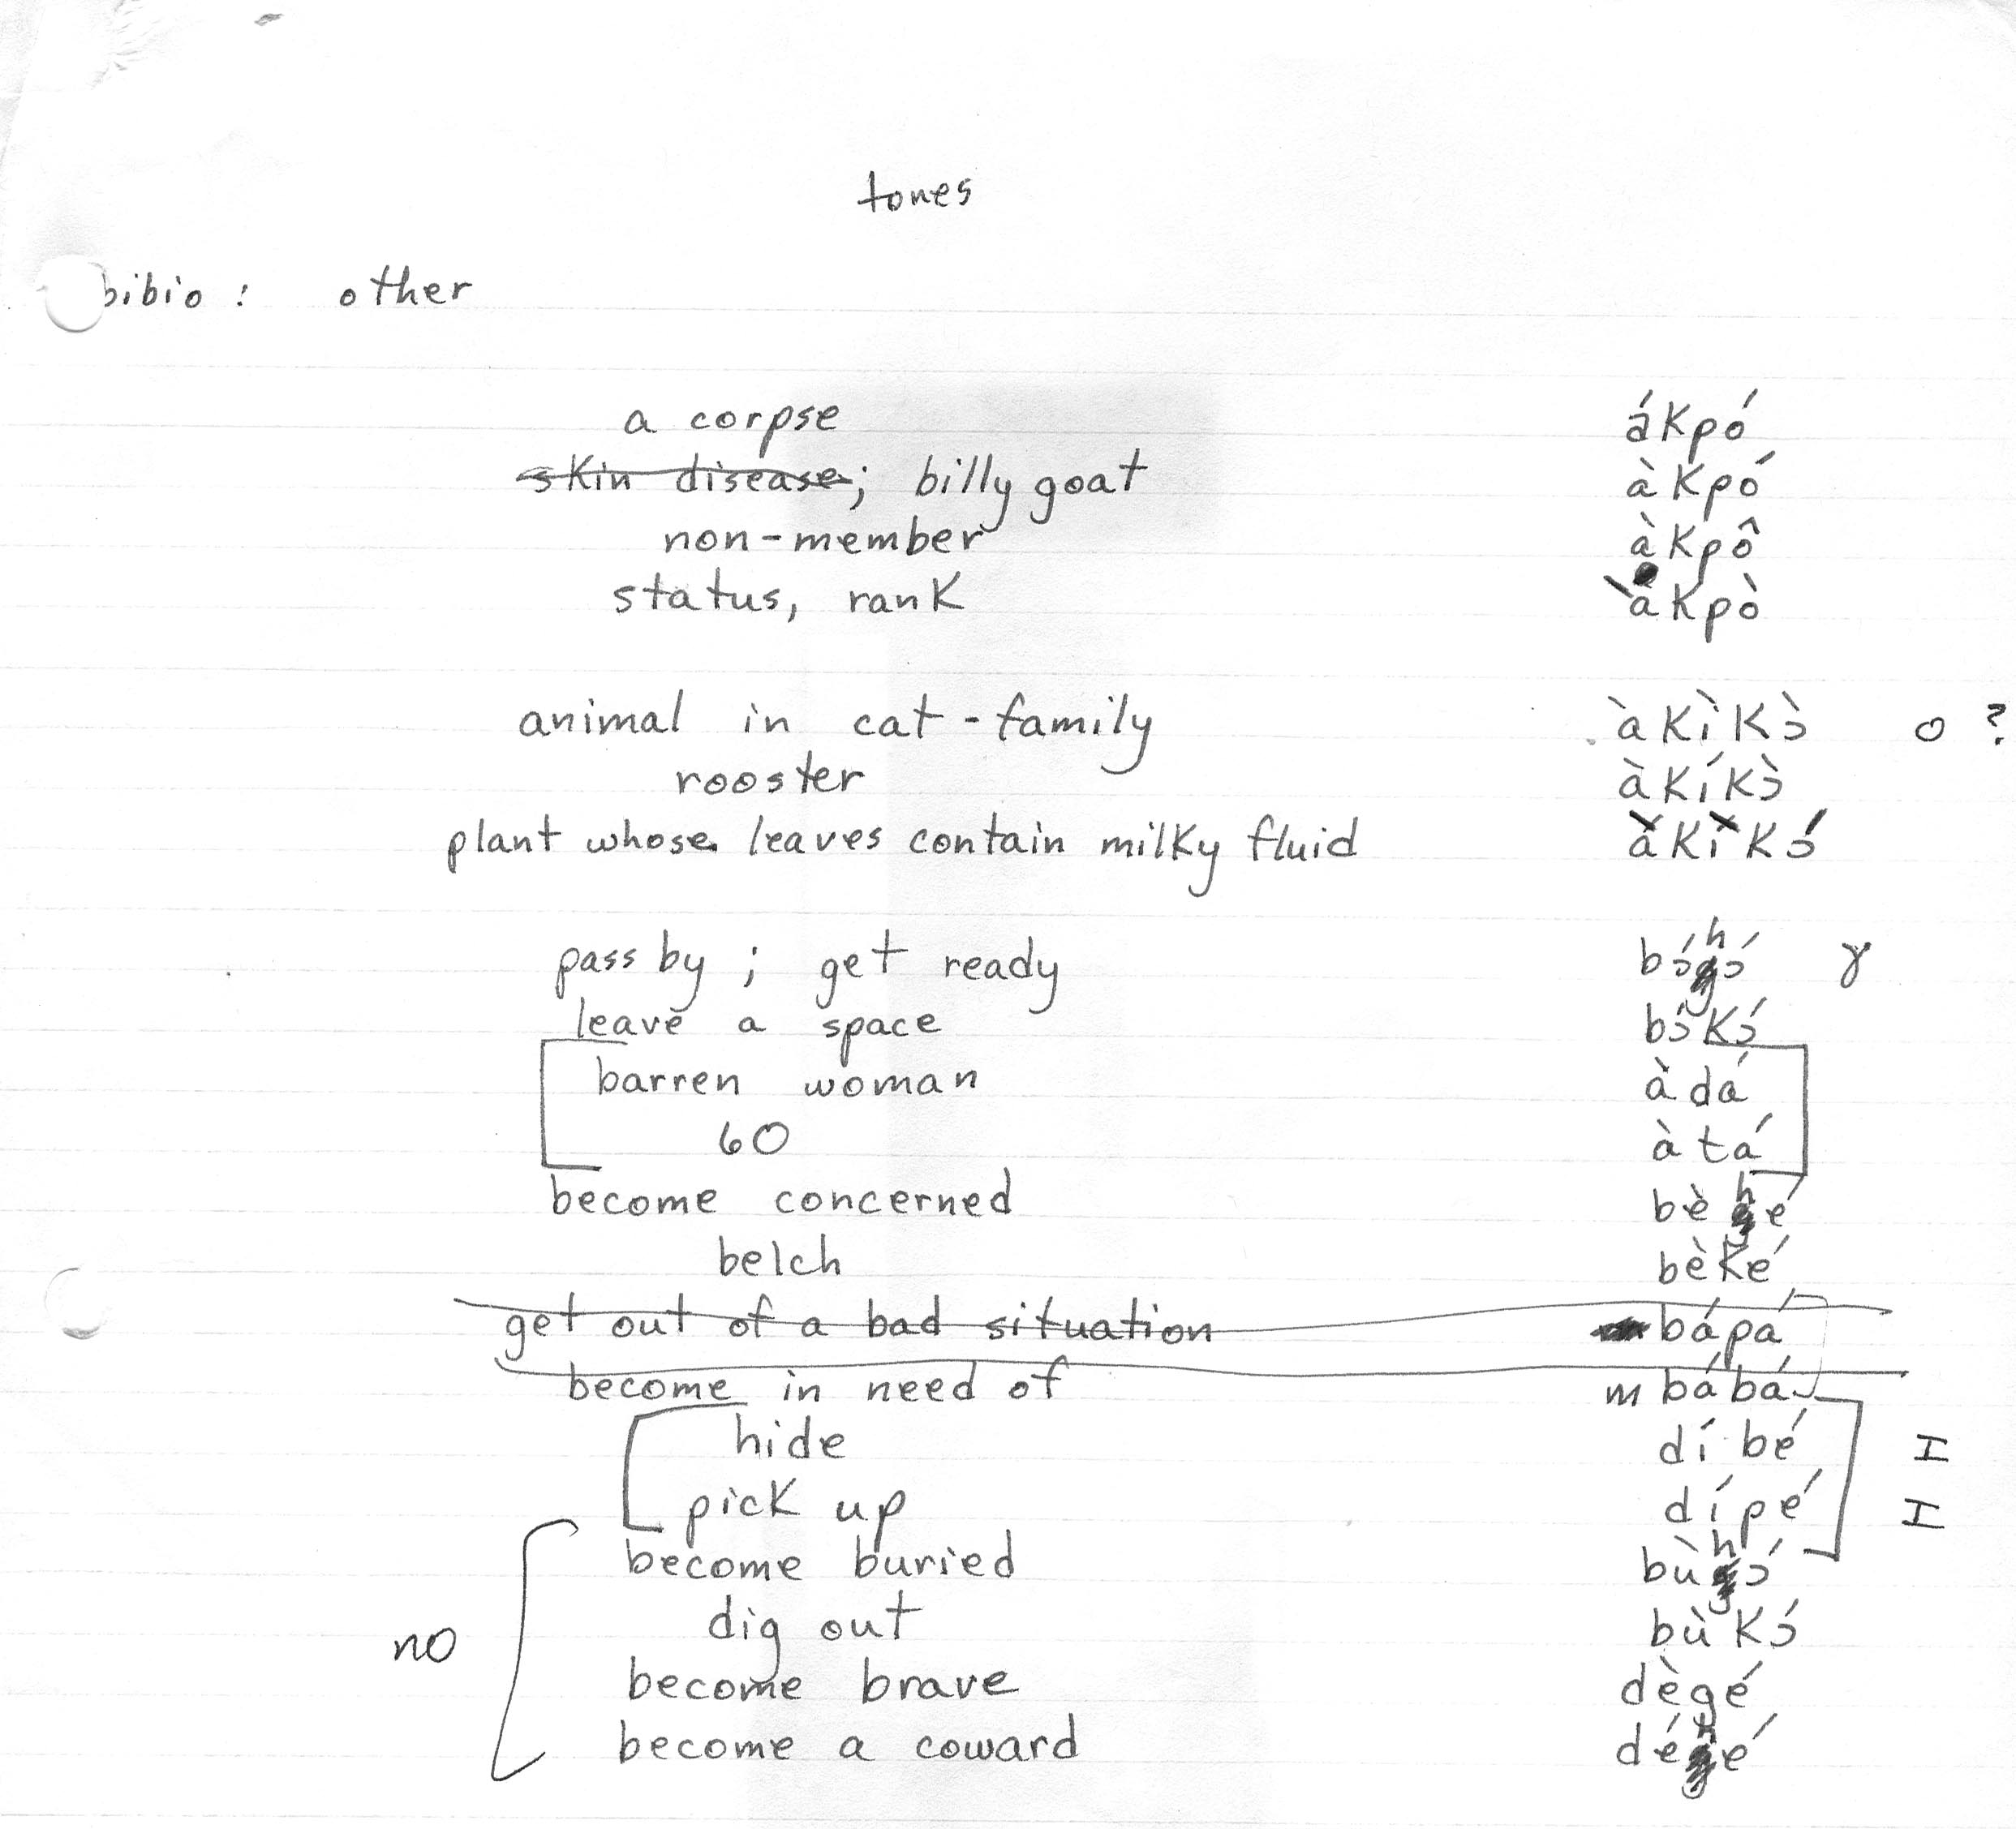 tones
bibio : other
a corpse ákpó
skin disease; billy goat àkpó
non-member àkpô
status, rank àkpò
animal in cat-family àkìkɔ̀ o ?
rooster àkíkɔ̀
plant whose leaves contain milky fluid àkìkɔ́
pass by ; get ready bɔ́hɔ́ ɣ
leave a space bɔ́kɔ́
barren woman àdá
60 àtá
become concerned bèhé
belch bèké
get out of a bad situation bápá
become in need of mbábá
hide díbé I
pick up dípé I
become buried bùhɔ́
no
dig out bùkɔ́
become brave dègé
become a coward déhé